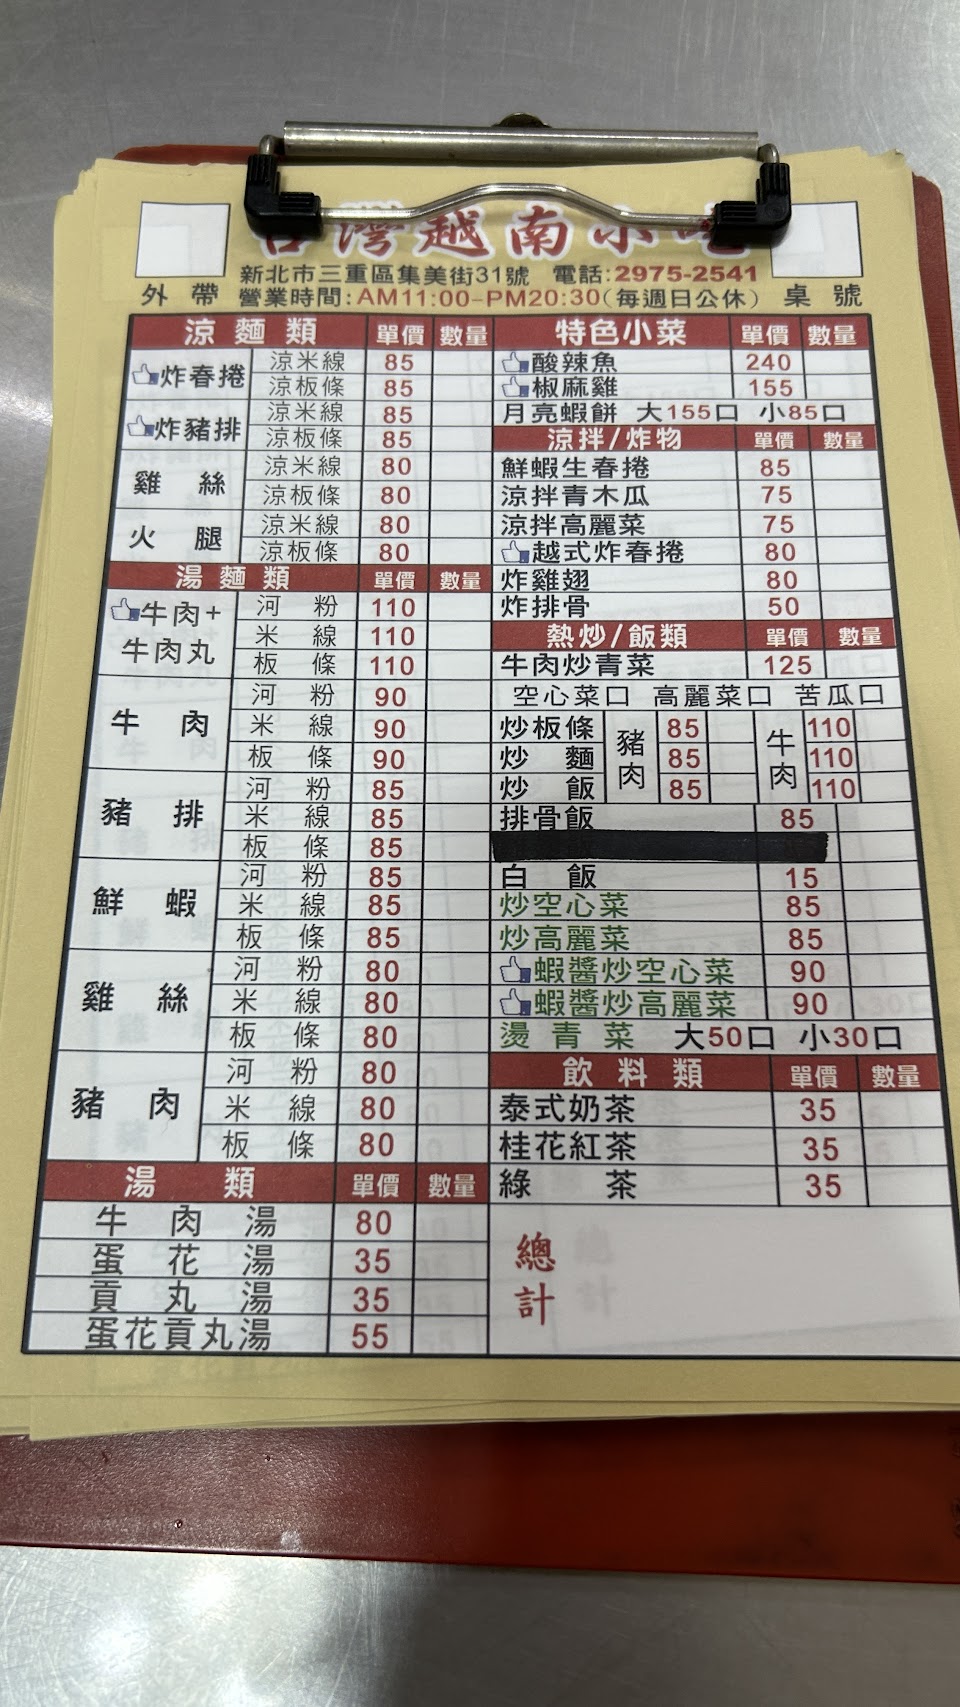 台灣越南小吃
新北市三重區集美街31號 電話:2975-2541
外帶 營業時間:AM11:00-PM20:30(每週日公休) 桌號
涼麵類 單價 數量
炸春捲 涼米線 85
涼板條 85
炸豬排 涼米線 85
涼板條 85
雞絲 涼米線 80
涼板條 80
火腿 涼米線 80
涼板條 80
湯麵類 單價 數量
牛肉+牛肉丸 河粉 110
米線 110
板條 110
牛肉 河粉 90
米線 90
板條 90
豬排 河粉 85
米線 85
板條 85
鮮蝦 河粉 85
米線 85
板條 85
雞絲 河粉 80
米線 80
板條 80
豬肉 河粉 80
米線 80
板條 80
湯類 單價 數量
牛肉湯 80
蛋花湯 35
貢丸湯 35
蛋花貢丸湯 55
特色小菜 單價 數量
酸辣魚 240
椒麻雞 155
月亮蝦餅 大155口 小85口
涼拌/炸物 單價 數量
鮮蝦生春捲 85
涼拌青木瓜 75
涼拌高麗菜 75
越式炸春捲 80
炸雞翅 80
炸排骨 50
熱炒/飯類 單價 數量
牛肉炒青菜 125
空心菜口 高麗菜口 苦瓜口
炒板條 豬肉 85 牛肉 110
炒麵 85 110
炒飯 85 110
排骨飯 85
白飯 15
炒空心菜 85
炒高麗菜 85
蝦醬炒空心菜 90
蝦醬炒高麗菜 90
燙青菜 大50口 小30口
飲料類 單價 數量
泰式奶茶 35
桂花紅茶 35
綠茶 35
總計